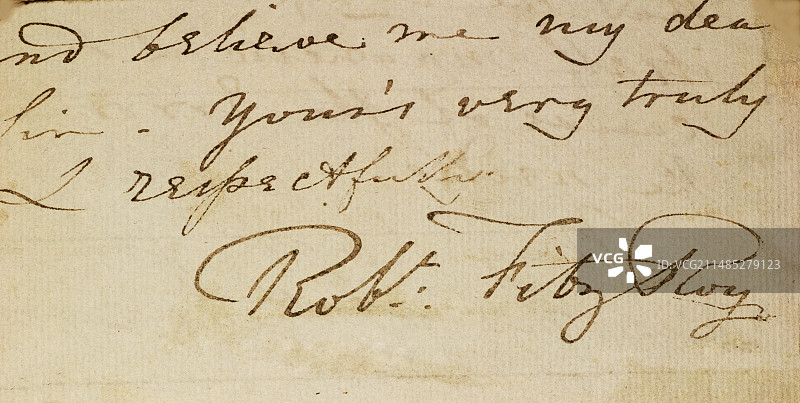 nd believe me my dea
Sir - Your's very truly
& respectfully.
Robt: FitzRoy
VCG ID:VCG211485279123